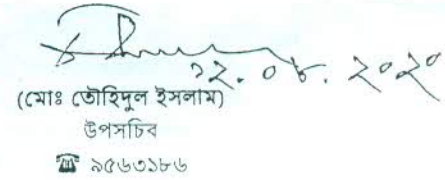 ১২.০৮.২০২০
(মোঃ তৌহিদুল ইসলাম)
উপসচিব
☎ ৯৫৬৩১৮৬